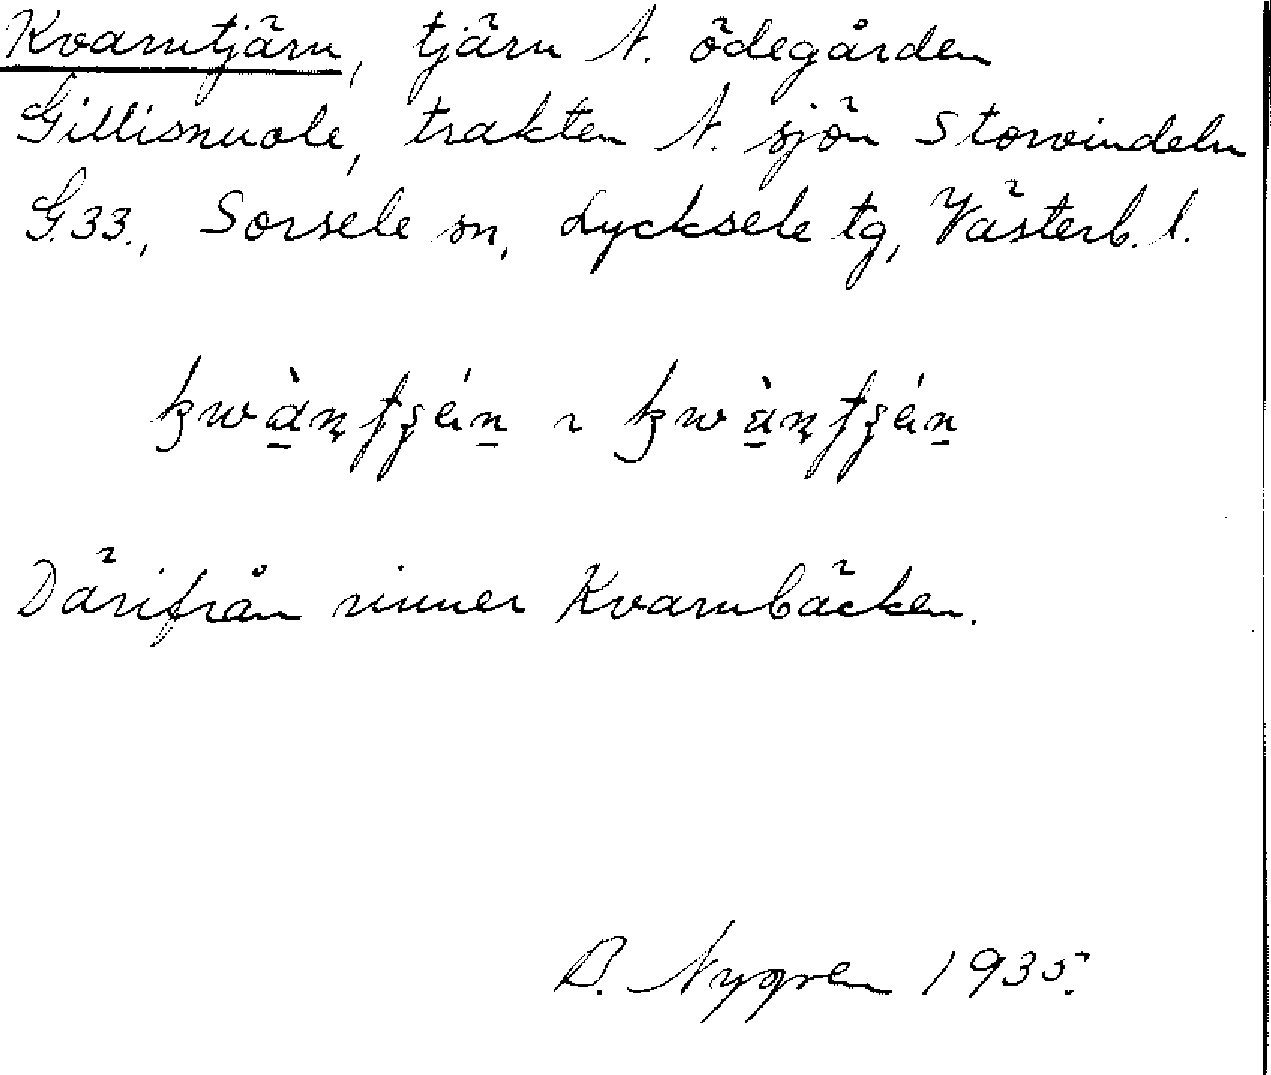 Kvarntjärn, tjärn N. ödegården
Gillisnuole, trakten N. sjön Storvindeln
G.33., Sorsele sn, Lycksele tg, Västerb. l.
Därifrån rinner Kvarnbäcken.
Nygren 1935.